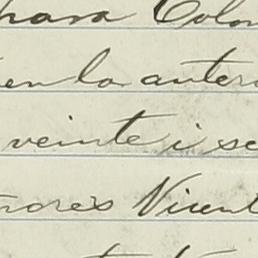 para Colon
en la anteri
veinte i se
nores Vicent